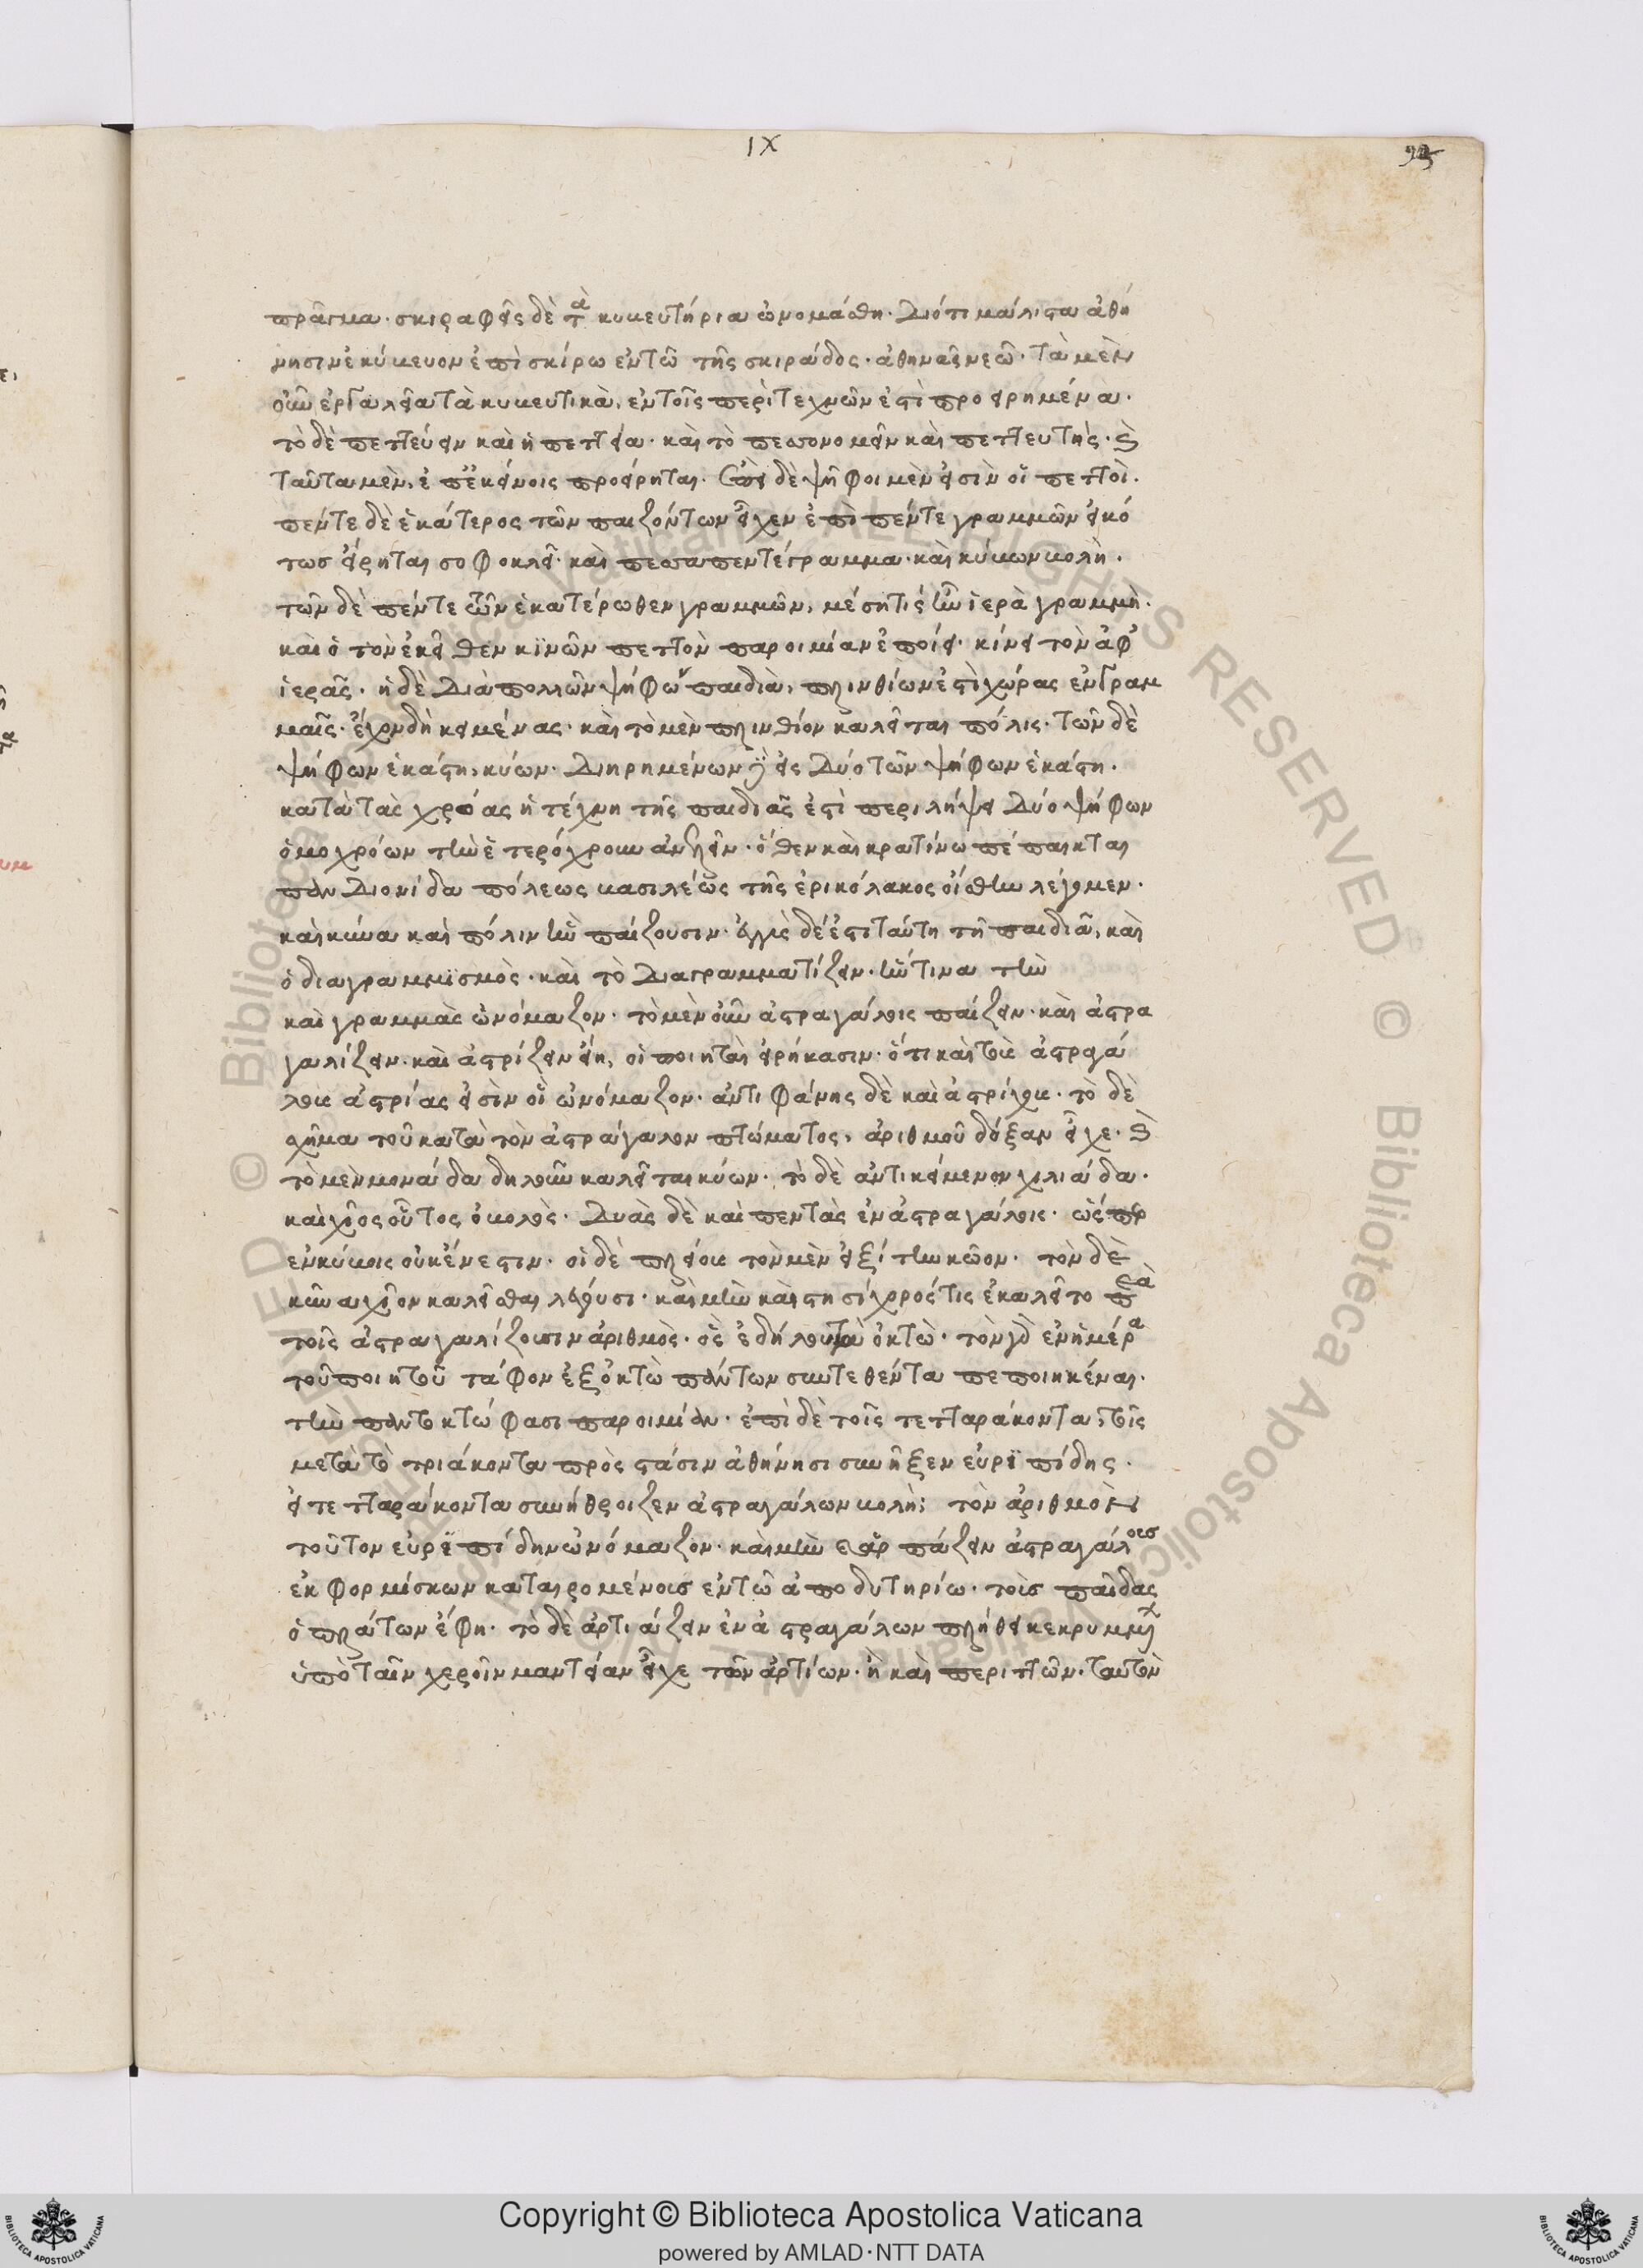 IX
πρᾶγμα· σκιραφεῖς δὲ τὰ κυκευτήρια ὠνομάσθη· Διότι μάλιστα ἀθή
νησιν ἐκύκευον ἐπὶ σκίρω ἐν τῶ τῆς σκιράδδος· ἀθηνᾶς νεῶ· τὰ μὲν
οὖν ἐργαλεῖα τὰ κυκευτικὰ, ἐν τοῖς περὶ τεχνῶν ἐστὶ προειρημένα·
τὸ δὲ πεττεύειν καὶ ἡ πεττεία· καὶ τὸ πεσσονομεῖν καὶ πεττευτής· καὶ
ταῦτα μὲν, ἐπ' ἐκείνοις προείρηται· δὲ ψῆφοι μὲν εἰσὶν οἱ πεττοὶ·
πέντε δὲ ἑκάτερος τῶν παιζόντων εἶχεν ἐπὶ πέντε γραμμῶν εἰκό
τως εἴρηται σοφοκλεῖ· καὶ πεσσὰ πεντέγραμμα· καὶ κύκων κολὴ·
τῶν δὲ πέντε τῶν ἑκατέρωθεν γραμμῶν, μέση τίς ἦν ἱερὰ γραμμὴ·
καὶ ὁ τὸν ἐκεῖθεν κινῶν πεττὸν παροιμίαν ἐποίει· κίνει τὸν ἀφ'
ἱερᾶς· ἡ δὲ Διὰ πολλῶν ψήφων παιδιὰ, πλινθίων ἐστὶ χώρας ἐν γραμ
μαῖς· ἔχον δὴ κειμένας· καὶ τὸ μὲν πλινθίον καλεῖται πόλις· τῶν δὲ
ψήφων ἑκάστη, κύων· Διηρημένων δὲ εἰς Δύο τῶν ψήφων ἑκάστη·
κατὰ τὰς χρόας ἡ τέχνη τῆς παιδιᾶς ἐστὶ περιλήψει Δύο ψήφων
ὁμοχρόων τὴν ἑτερόχρουν ἀνελεῖν· ὅθεν καὶ κρατίνω πέπαικται
πανδιονίδα πόλεως κασιλέως τῆς ἐρικόλακος οἶσθ' ἣν λέγομεν·
καὶ κύνα καὶ πόλιν ἣν παίζουσιν· ἐγγὺς δέ ἐστι ταύτη τῆ παιδιᾶ, καὶ
ὁ διαγραμμισμὸς· καὶ τὸ Διαγραμματίζειν· ἥντινα τὴν
καὶ γραμμὰς ὠνόμαζον· τὸ μὲν οὖν ἀστραγάλοις παίζειν· καὶ ἀστρα
γαλίζειν· καὶ ἀστρίζειν ἔφη, οἱ ποιηταὶ εἰρήκασιν· ὅτι καὶ τοὺς ἀστραγά
λους ἀστρίας εἰσὶν οἳ ὠνόμαζον· ἀντιφάνης δὲ καὶ ἀστρίχους· τὸ δὲ
σχῆμα τοῦ κατὰ τὸν ἀστράγαλον πτώματος, ἀριθμοῦ δόξαν εἶχε· καὶ
τὸ μὲν μονάδα δηλοῦν καλεῖται κύων· τὸ δὲ ἀντικείμενον χιλιάδα·
καὶ χῖος οὗτος ὁ κολὸς· Δυὰς δὲ καὶ πεντὰς ἐν ἀστραγάλοις· ὥσπερ
ἐν κύκοις οὐκ ἔνεστιν· οἱ δὲ πλείους τὸν μὲν εἰξί την κῶον· τὸν δὲ
κύνα χῖον καλεῖσθαι λέγουσι· καὶ μὴν καὶ στησίχορός τις ἐκαλεῖτο παρὰ
τοῖς ἀστραγαλίζουσιν ἀριθμὸς· ὃς ἐδήλου τὰ ὀκτὼ· τὸν γὰρ ἐν ἡμέρα
τοῦ ποιητοῦ τάφον ἐξ ὀκτὼ πάντων συντεθέντα πεποιηκέναι·
τὴν πάντ' ὀκτώ φασι παροιμίαν· ἐπὶ δὲ τοῖς τετταράκοντα, τοῖς
μετὰ τὸ τριάκοντα πρὸς στάσιν ἀθήνησι συνῆξεν εὐριπίδης·
εἰ τετταράκοντα συνήθροιζεν ἀστραγάλων κολὴ; τὸν ἀριθμὸν
τοῦτον εὐριπίδην ὠνόμαζον· καὶ μὴν παίζειν ἀστραγάλοις
ἐκ φορμίσκων καταιρομένοις ἐν τῶ ἀποδυτηρίω· τοὺς παῖδας
ὁ πλάτων ἔφη· τὸ δὲ ἀρτιάζειν ἐν ἀστραγάλων πλήθει κεκρυμμ
ὑπὸ ταῖν χεροῖν μαντείαν εἶχε τῶν ἀρτίων· ἢ καὶ περιττῶν· ταυτὸν
Copyright © Biblioteca Apostolica Vaticana
powered by AMLAD·NTT DATA